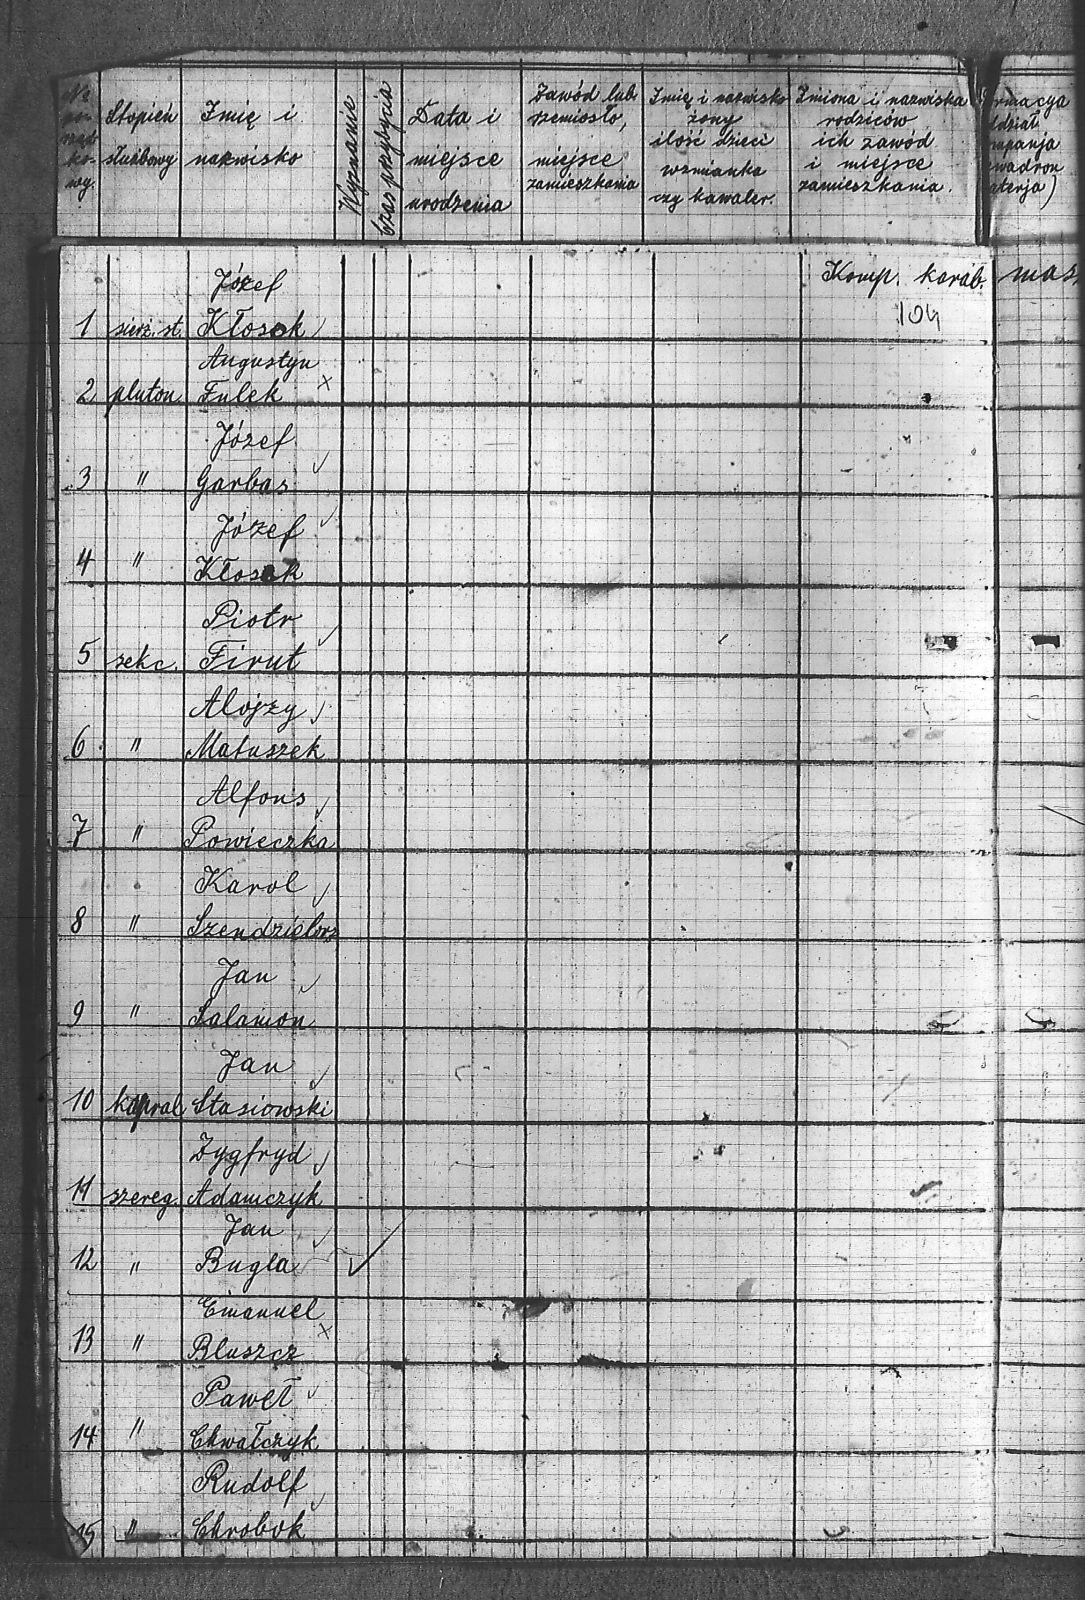 Nr po- rząd- ko- wy.
Stopień służbowy
Imię i nazwisko
Wyznanie
Czas przybycia
Data i miejsce urodzenia
Zawód lub rzemiosło, miejsce zamieszkania
Imię i nazwisko żony ilość dzieci wzmianka czy kawaler.
Imiona i nazwiska rodziców ich zawód i miejsce zamieszkania.
rmacya
ddział
mpanja
wadron
aterja)
Komp. karab. mas
104
Józef
1 sierż. st. Kłosek
Augustyn
2 pluton Fulek x
Józef
3 " Garbas
Józef
4 " Kłosek
Piotr
5 sekc. Firut
Alojzy
6 " Matuszek
Alfons
7 " Powieczka
Karol
8 " Szendzielorz
Jan
9 " Salamon
Jan
10 kapral Stasiowski
Zygfryd
11 szereg. Adamczyk
Jan
12 " Bugla
Emanuel
13 " Bluszcz x
Paweł
14 " Chwałczyk
Rudolf
15 " Chrobok